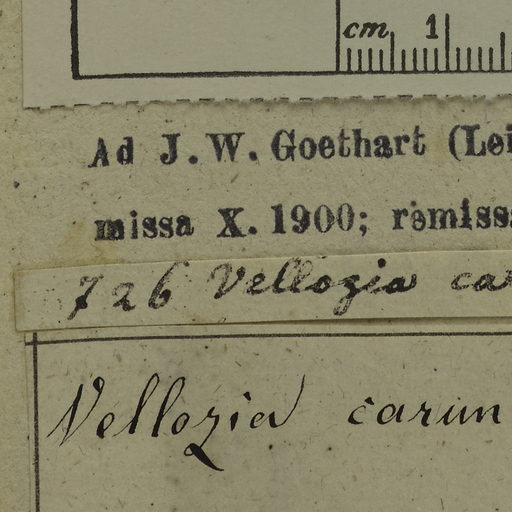 cm 1
Ad J. W. Goethart (Lei
missa X. 1900; remiss
726 Vellozia ca
Vellozia carun